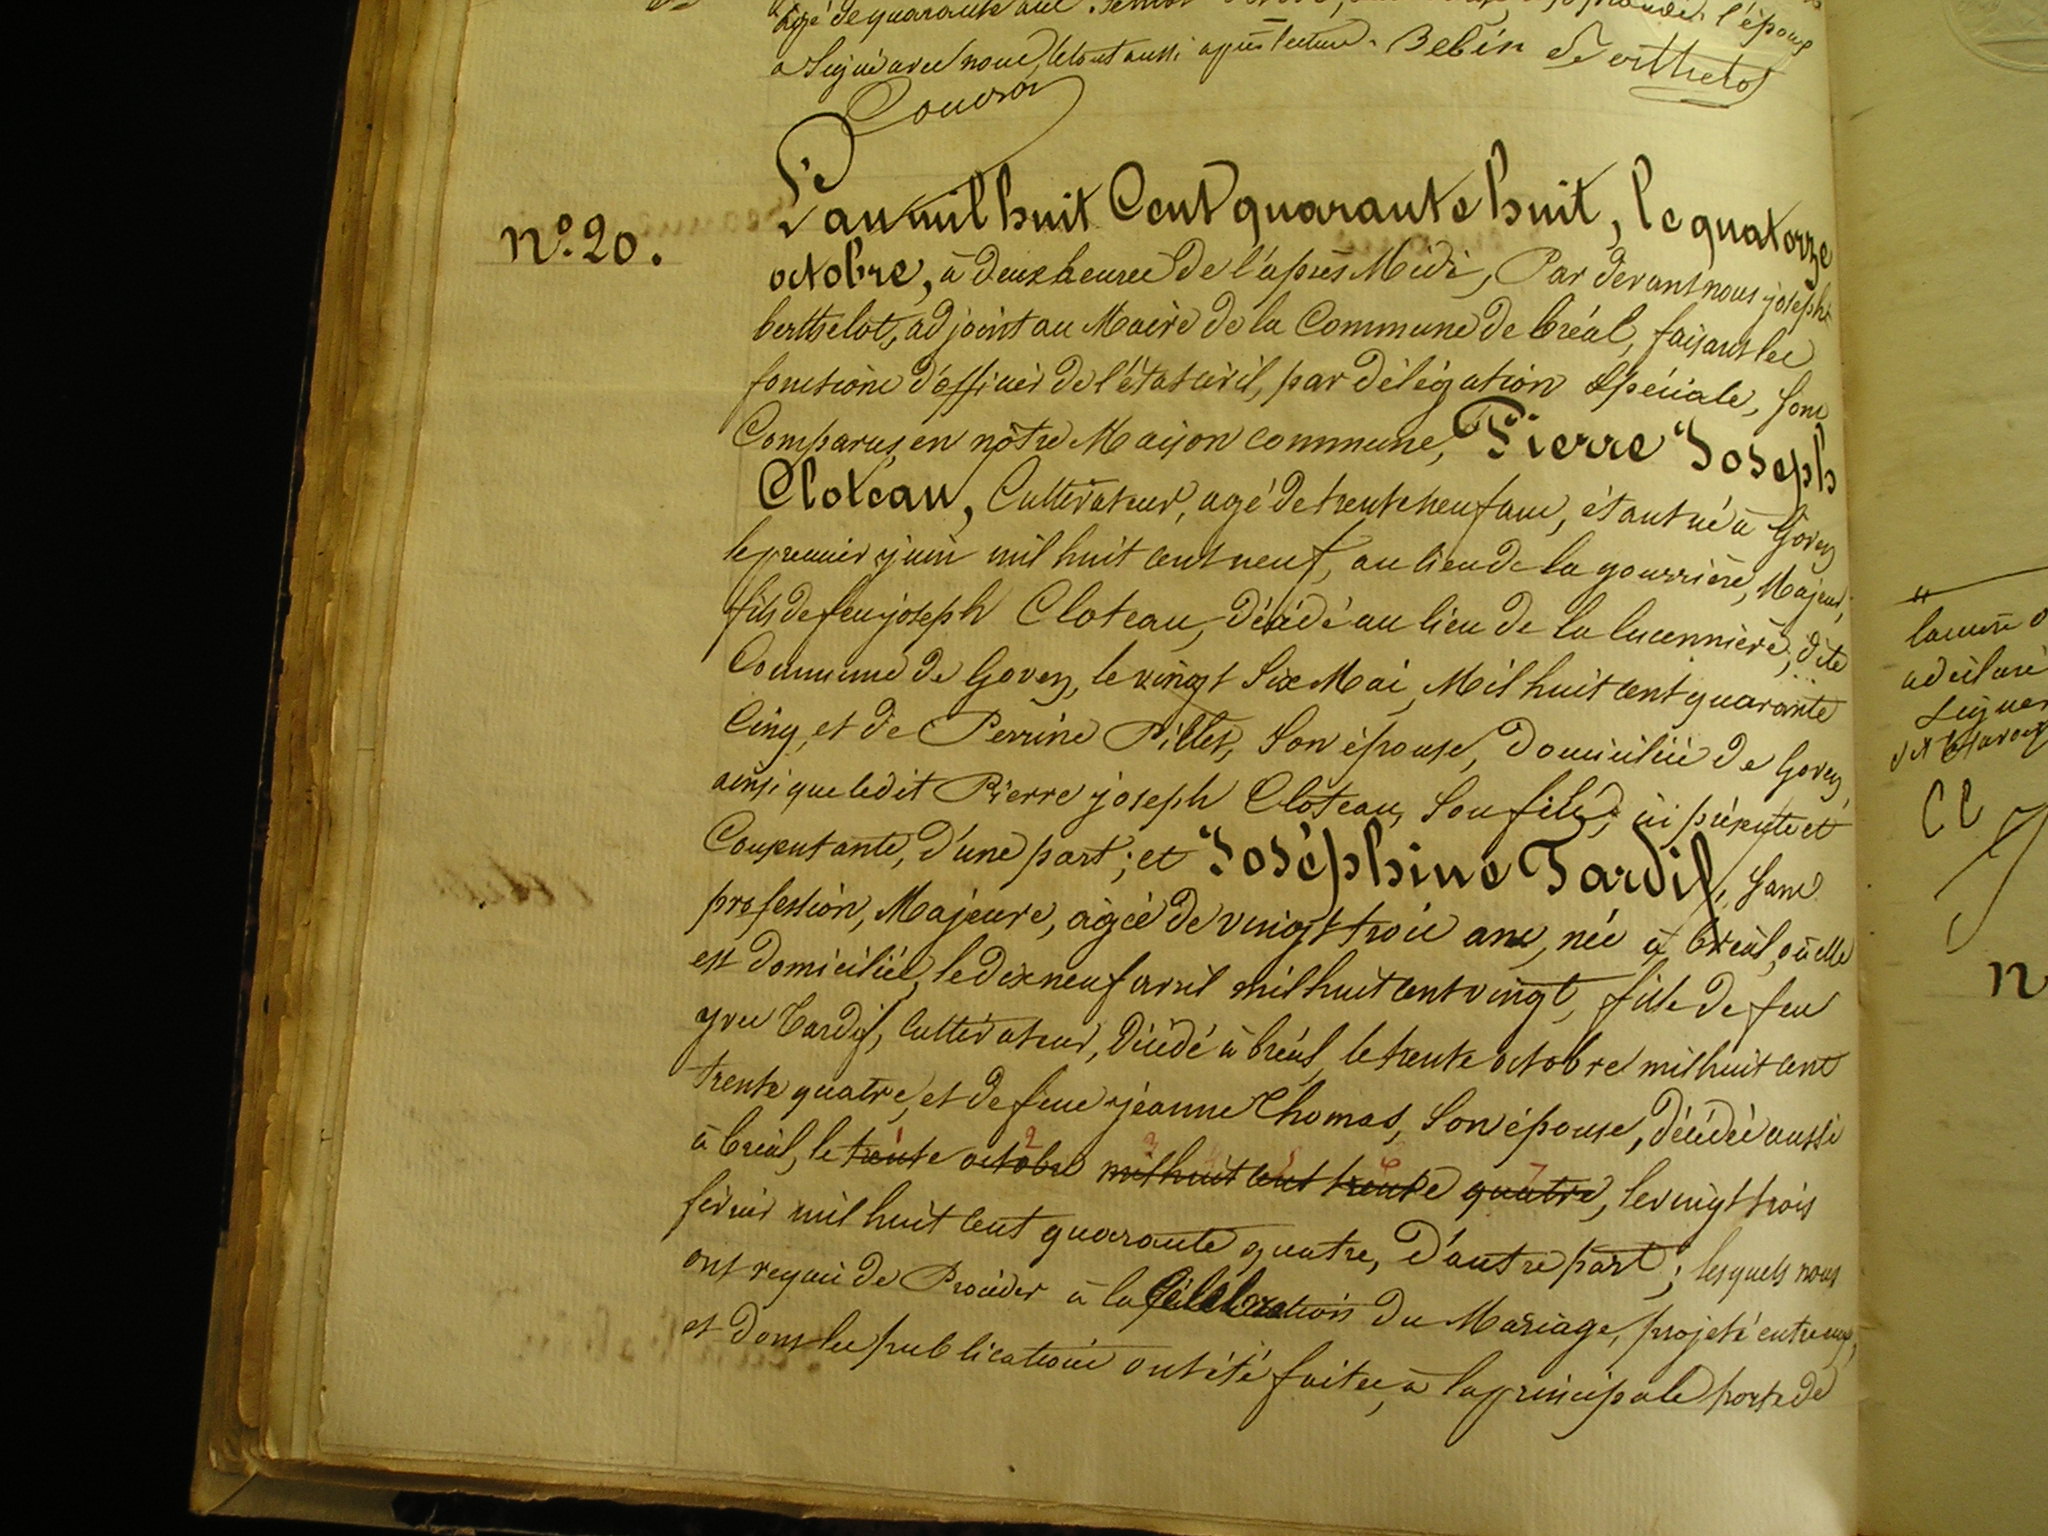 agé de quarante ans. l'époux
a Signé avec nous, le tout aussi après lecture. Bebin Berthelot
Couvson
N.º 20.
L'an mil huit Cent quarante huit, le quatorze
octobre, à deux heures de l'après Midi, Par devant nous joseph
berthelot, adjoint au Maire de la Commune de bréal, faisant les
fonctions d'officier de l'état civil, par délégation Spéciale, Sont
Comparus, en nôtre Maison commune, Pierre Joseph
Cloteau, Cultivateur, agé de trente neuf ans, étant né à Goven
le premier juin mil huit cent neuf, au lieu de la gourrière, Majeur,
fils de feu joseph Cloteau, décédé au lieu de la lucennière, dite
Commune de Goven, le vingt Six Mai, Mil huit cent quarante
Cinq, et de Perrine Pillet, Son épouse, domiciliée de Goven
ainsi que ledit Pierre joseph Cloteau, Son fils, ici présente et
Consentante, d'une part; et Joséphine Tardif, Sans
profession, Majeure, agée de vingt trois ans, née à bréal, où elle
est domiciliée, le dix neuf avril mil huit cent vingt, fille de feu
yves Tardif, Cultivateur, décédé à bréal, le trente octobre mil huit cent
trente quatre, et de feue jéanne Thomas, Son épouse, décédée aussi
à bréal, le trente octobre mil huit cent trente quatre, le vingt trois
février mil huit cent quarante quatre, d'autre part; lesquels nous
ont requis de Procéder à la Célébration du Mariage, projeté entre eux,
et dont les publications ont été faites, à la principale porte de
laquelle
a déclaré
Signer
N